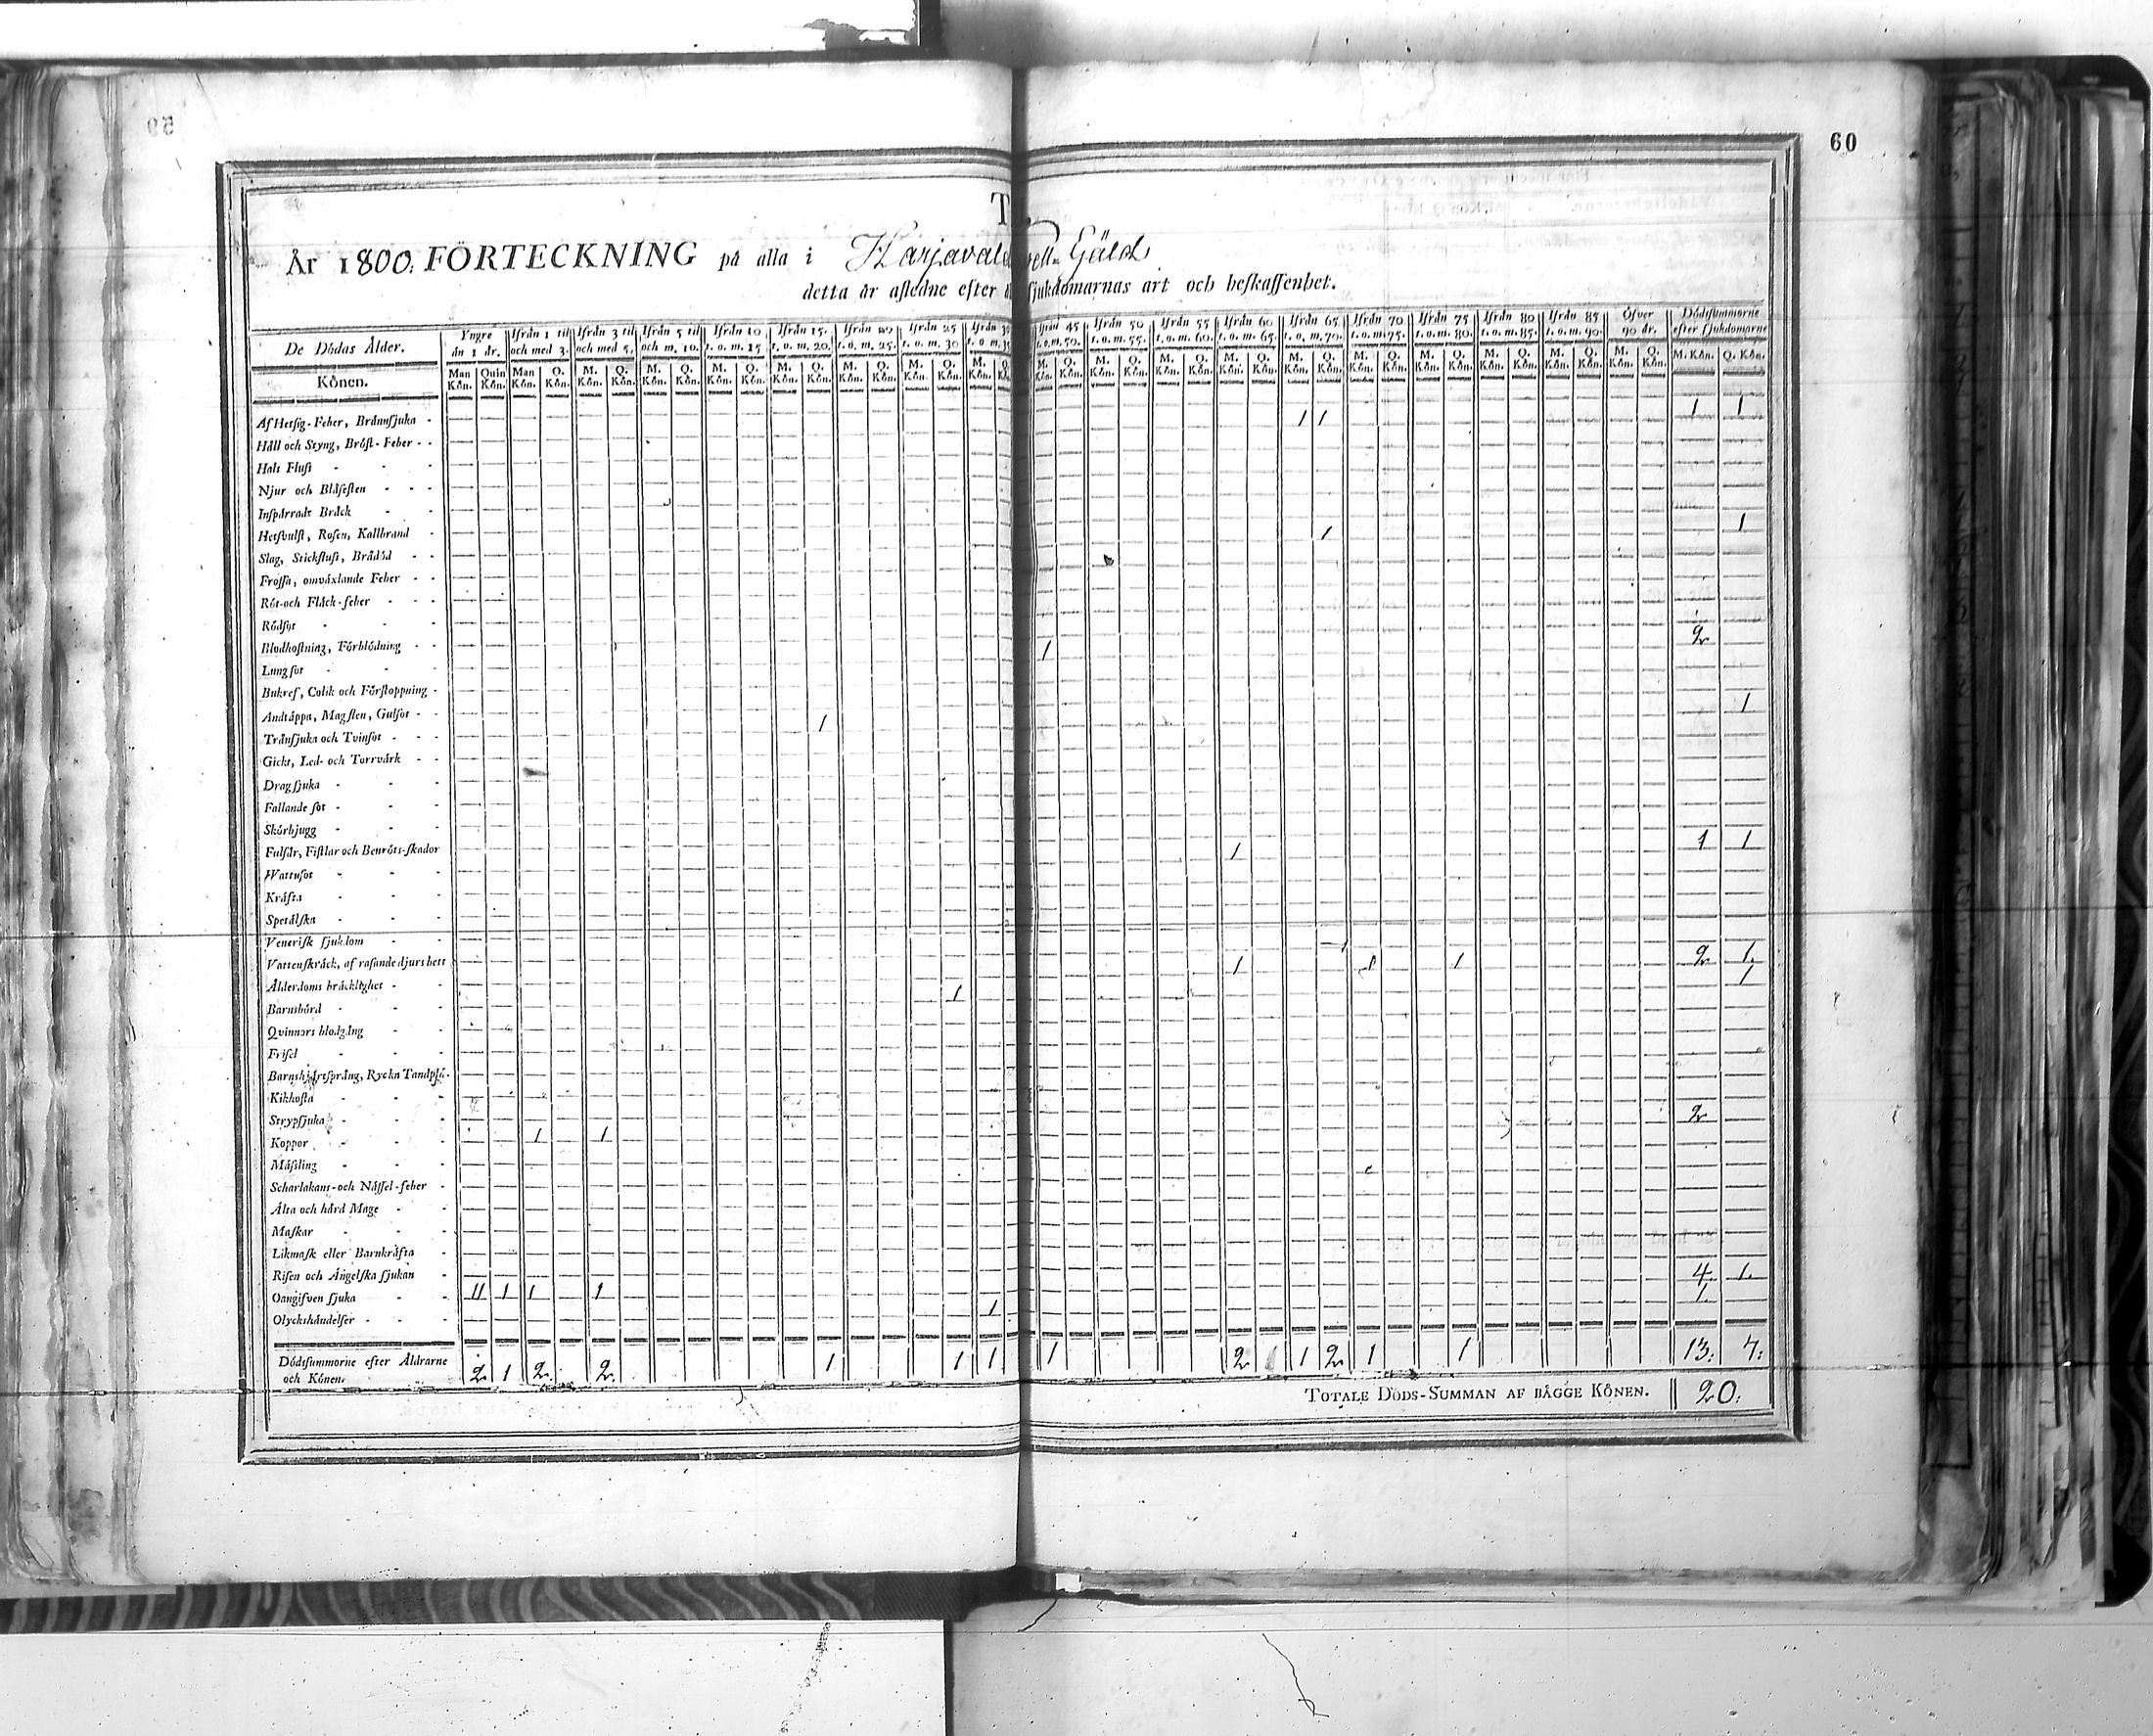 60
År 1800. FÖRTECKNING på alla i Harjavald Gäld
detta år afledne efter sjukdomarnas art och beskaffenhet.
De Dödas Ålder.
Yngre än 1 år. Ifrån 1 til och med 3. Ifrån 3 til och med 5. Ifrån 5 til och m. 10. Ifrån 10 t. o. m. 15 Ifrån 15. t. o. m. 20. Ifrån 20 t. o. m. 25. Ifrån 25 t. o. m. 30 Ifrån 30 t. o. m. Ifrån 45 t. o. m. 50. Ifrån 50 t. o. m. 55. Ifrån 55 t. o. m. 60. Ifrån 60 t. o. m. 65. Ifrån 65 t. o. m. 70. Ifrån 70 t. o. m. 75. Ifrån 75 t. o. m. 80. Ifrån 80 t. o. m. 85. Ifrån 85 t. o. m. 90. Öfver 90 år. Dödssummorne efter sjukdomarne
Könen.
Man Kön. Quin Kön. Man Kön. Q. Kön. M. Kön. Q. Kön. M. Kön. Q. Kön. M. Kön. Q. Kön. M. Kön. Q. Kön. M. Kön. Q. Kön. M. Kön. Q. Kön. M. Kön. M. Kön. Q. Kön. M. Kön. Q. Kön. M. Kön. Q. Kön. M. Kön. Q. Kön. M. Kön. Q. Kön. M. Kön. Q. Kön. M. Kön. Q. Kön. M. Kön. Q. Kön. M. Kön. Q. Kön. M. Kön. Q. Kön. M. Kön. Q. Kön.
Af Hetsig-Feber, Brännsjuka 1 1 1 1
Håll och Styng, Bröst-Feber
Hals Flusś
Njur och Blåsesten
Inspärradt Bråck
Hetsvulst, Rosen, Kallbrand 1 1
Slag, Stickflusś, Brådöd
Frossa, omväxlande Feber
Röt-och Fläck-feber
Rödsot
Blodhostning, Förblödning 1 2
Lungsot
Bukref, Colik och Förstoppning
Andtäppa, Magsten, Gulsot 1 1
Trånsjuka och Tvinsot
Gickt, Led- och Torrvärk
Dragsjuka
Fallande sot
Skörbjugg
Fulsår, Fistlar och Benröts-skador 1 1 1
Wattusot
Kräfta
Spetälska
Venerisk sjukdom
Vattenskräck, af rasande djurs bett 1 1 1 2 1.
Ålderdoms bräcklighet 1 1
Barnsbörd
Qvinners blodgång
Frisel
Barnshjertsprång, Ryck
Kikhosta
Strypsjuka 2
Koppor 1 1
Mäsling
Scharlakans-och Nässel-feber
Älta och hård Mage
Maskar
Likmask eller Barnkräfta
Risen och Ängelska sjukan 4. 1.
Oangifven sjuka 11 1 1 1 1.
Olyckshändelser 1
Dödssummorne efter Åldrarne och Könen. 2. 1 2. 2. 1 1 1 1 2 1 1 2. 1 1 13. 7.
TOTALE DÖDS-SUMMAN AF BÄGGE KÖNEN. 20.